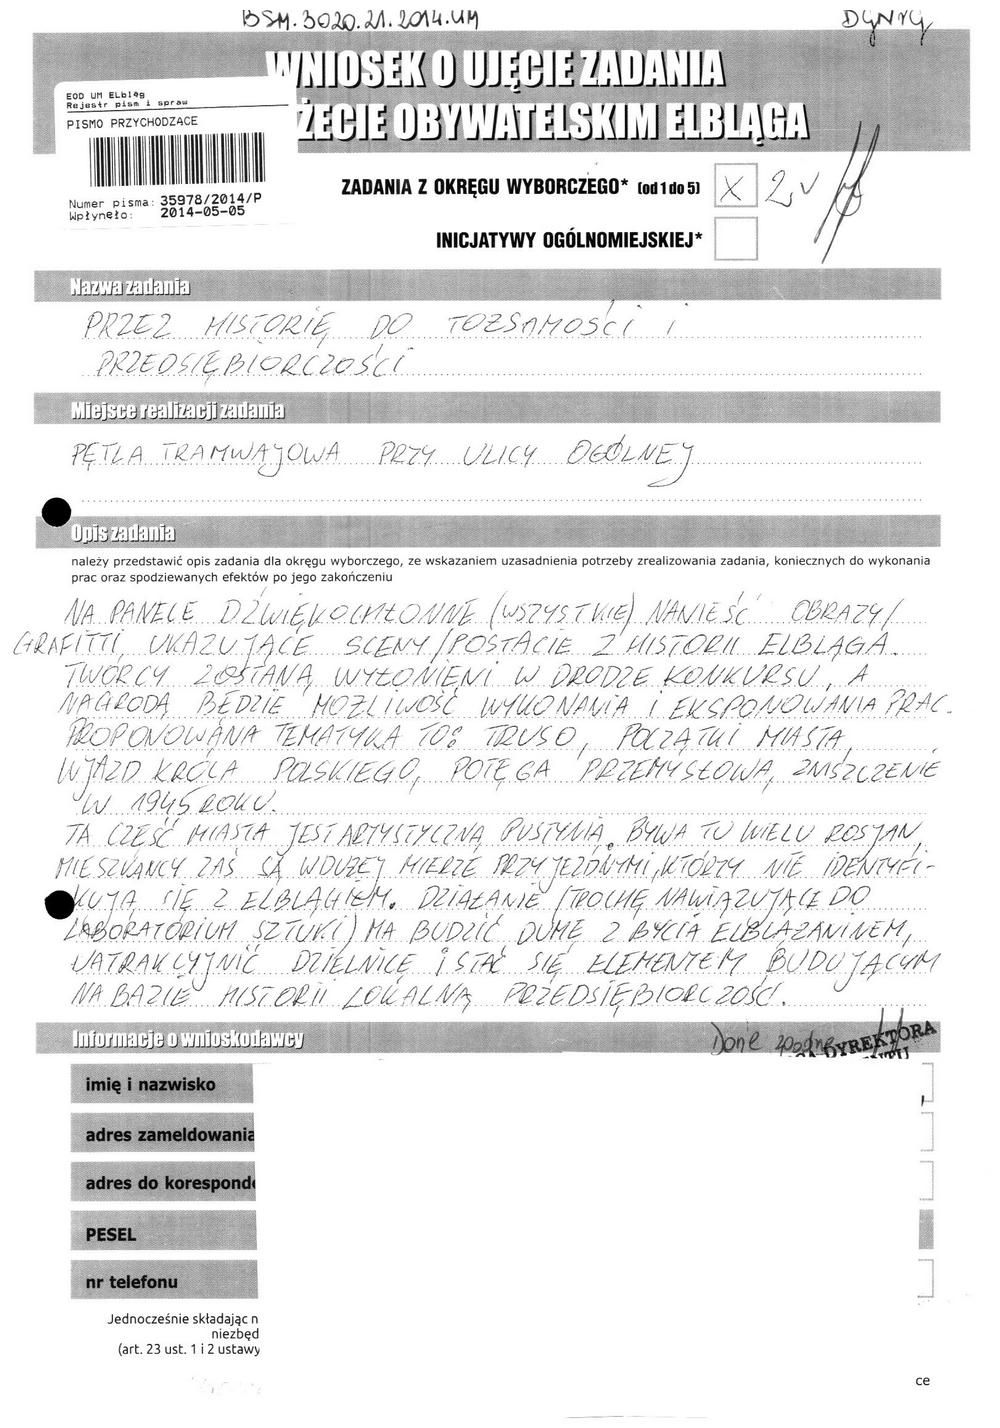 BSM.3020.21.2014.UM
WNIOSEK O UJĘCIE ZADANIA
ŻECIE OBYWATELSKIM ELBLĄGA
EOD UM ELbląg
Rejestr pism i spraw
PISMO PRZYCHODZĄCE
Numer pisma: 35978/2014/P
Wpłynęło: 2014-05-05
ZADANIA Z OKRĘGU WYBORCZEGO* (od 1 do 5) X 2
INICJATYWY OGÓLNOMIEJSKIEJ*
Nazwa zadania
PRZEZ HISTORIĘ DO TOŻSAMOŚCI I
PRZEDSIĘBIORCZOŚCI
Miejsce realizacji zadania
PĘTLA TRAMWAJOWA PRZY ULICY OGÓLNEJ
Opis zadania
należy przedstawić opis zadania dla okręgu wyborczego, ze wskazaniem uzasadnienia potrzeby zrealizowania zadania, koniecznych do wykonania
prac oraz spodziewanych efektów po jego zakończeniu
NA PANELE DŹWIĘKOCHŁONNE (WSZYSTKIE) NANIEŚĆ OBRAZY/
GRAFITTI, UKAZUJĄCE SCENY/POSTACIE Z HISTORII ELBLĄGA.
TWÓRCY ZOSTANĄ WYŁONIENI W DRODZE KONKURSU, A
NAGRODĄ BĘDZIE MOŻLIWOŚĆ WYKONANIA I EKSPONOWANIA PRAC.
PROPONOWANA TEMATYKA TO: TRUSO, POCZĄTKI MIASTA,
WJAZD KRÓLA POLSKIEGO, POTĘGA PRZEMYSŁOWA, ZNISZCZENIE
W 1945 ROKU.
TA CZĘŚĆ MIASTA JEST ARTYSTYCZNĄ PUSTYNIĄ. BYWA TU WIELU ROSJAN,
MIESZKAŃCY ZAŚ SĄ W DUŻEJ MIERZE PRZYJEZDNYMI, KTÓRZY NIE IDENTYFI-
KUJĄ SIĘ Z ELBLĄGIEM. DZIAŁANIE (TROCHĘ NAWIĄZUJĄCE DO
LABORATORIUM SZTUKI) MA BUDZIĆ DUMĘ Z BYCIA ELBLĄŻANINEM,
UATRAKCYJNIĆ DZIELNICĘ I STAĆ SIĘ ELEMENTEM BUDUJĄCYM
NA BAZIE HISTORII LOKALNĄ PRZEDSIĘBIORCZOŚĆ.
Informacje o wnioskodawcy
DYREKTORA
imię i nazwisko
adres zameldowania
adres do koresponde
PESEL
nr telefonu
Jednocześnie składając n
niezbęd
(art. 23 ust. 1 i 2 ustawy
ce